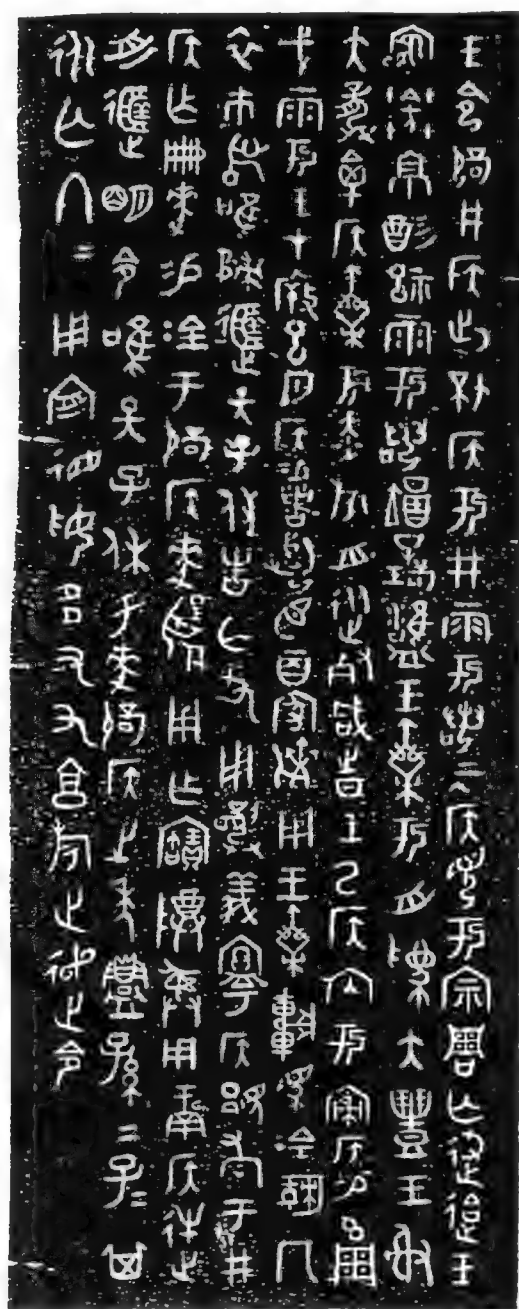 王令辟井侯出坏侯于井雩若二月侯見于宗周亡尤迨王
𩜁京酌祀雩若翌日才璧雝王乘于舟為大豐王射
大龏禽侯乘于赤旂舟從死咸之日王以侯內于寑侯易玄周
戈雩王才啟巳月侯易者𢦚臣二百家劑用王乘車馬金勒冂
衣巿舄唯歸𨒙天子休告亡尤用龏義寧侯覭孝于井
侯乍冊麥易金于辟侯麥揚用乍寶尊彝用𤔲侯逆
𨒙明令唯天子休于麥辟侯之年鑄孫=子=其
永亡冬=用德妥多友亯旋走令